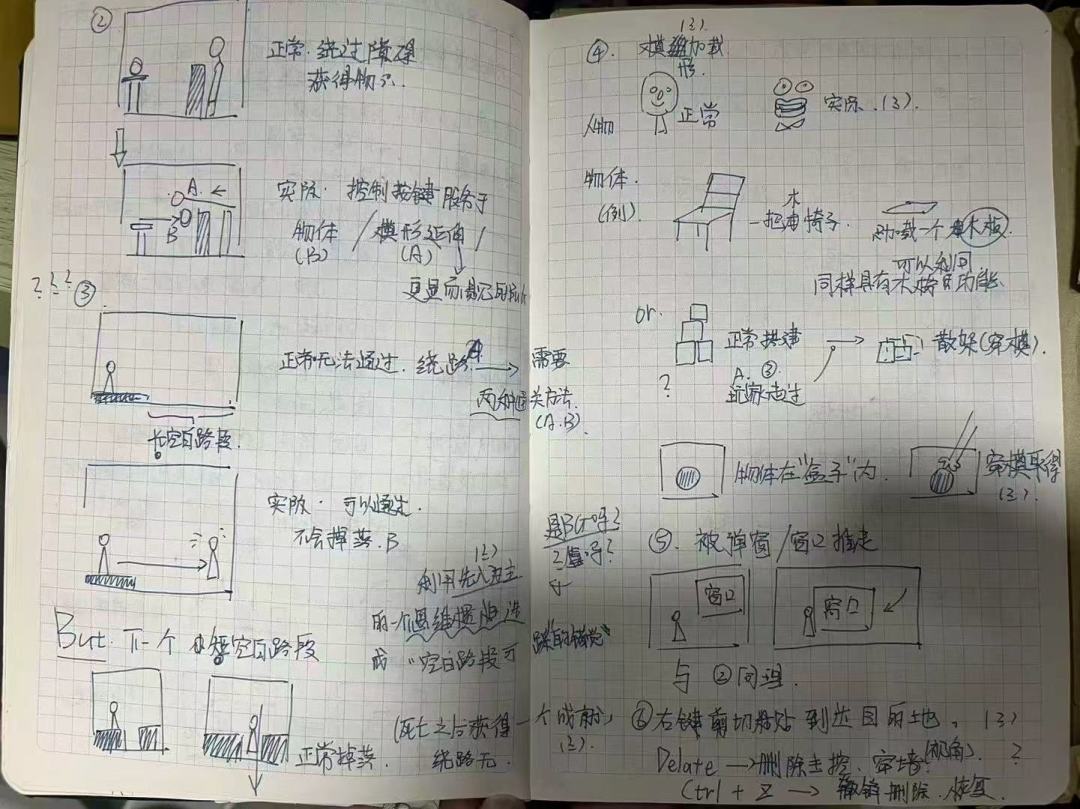 ②
正常·绕过障碍
获得物品
A
B
实际· 控制按键服务于
物体 / 模形延伸 /
(B) (A)
更显而易见的
? ? ? ③
正常无法通过. 绕路 → 需要
两种通关方法.
(A.B)
长空白路段.
实际· 可以通过.
不会掉落. B
利用先入为主
(?)
的一个思维惯性造
成 "空白路段可踩的错觉"
But. 下一个 短空白路段
正常掉落.
(死亡之后获得一个成就)
(?).
绕路无.
④. 模组加载
(?)
形.
人物 正常 实际.(?)
物体.
(例).
一把木椅子.
只加载一个木板.
可以利用
同样具有木椅子功能.
or.
正常搭建 → 散架(穿模).
A. ③
玩家走过
?
物体在"盒子"内. 穿模取得
(?).
是BUG吗?
⑤. 被弹窗/窗口推走
窗口 窗口
与 ②同理.
⑥右键剪切粘贴 到达目的地. (?)
Delate → 删除主控. 穿墙(视角). ?
Ctrl + Z → 撤销删除. 恢复